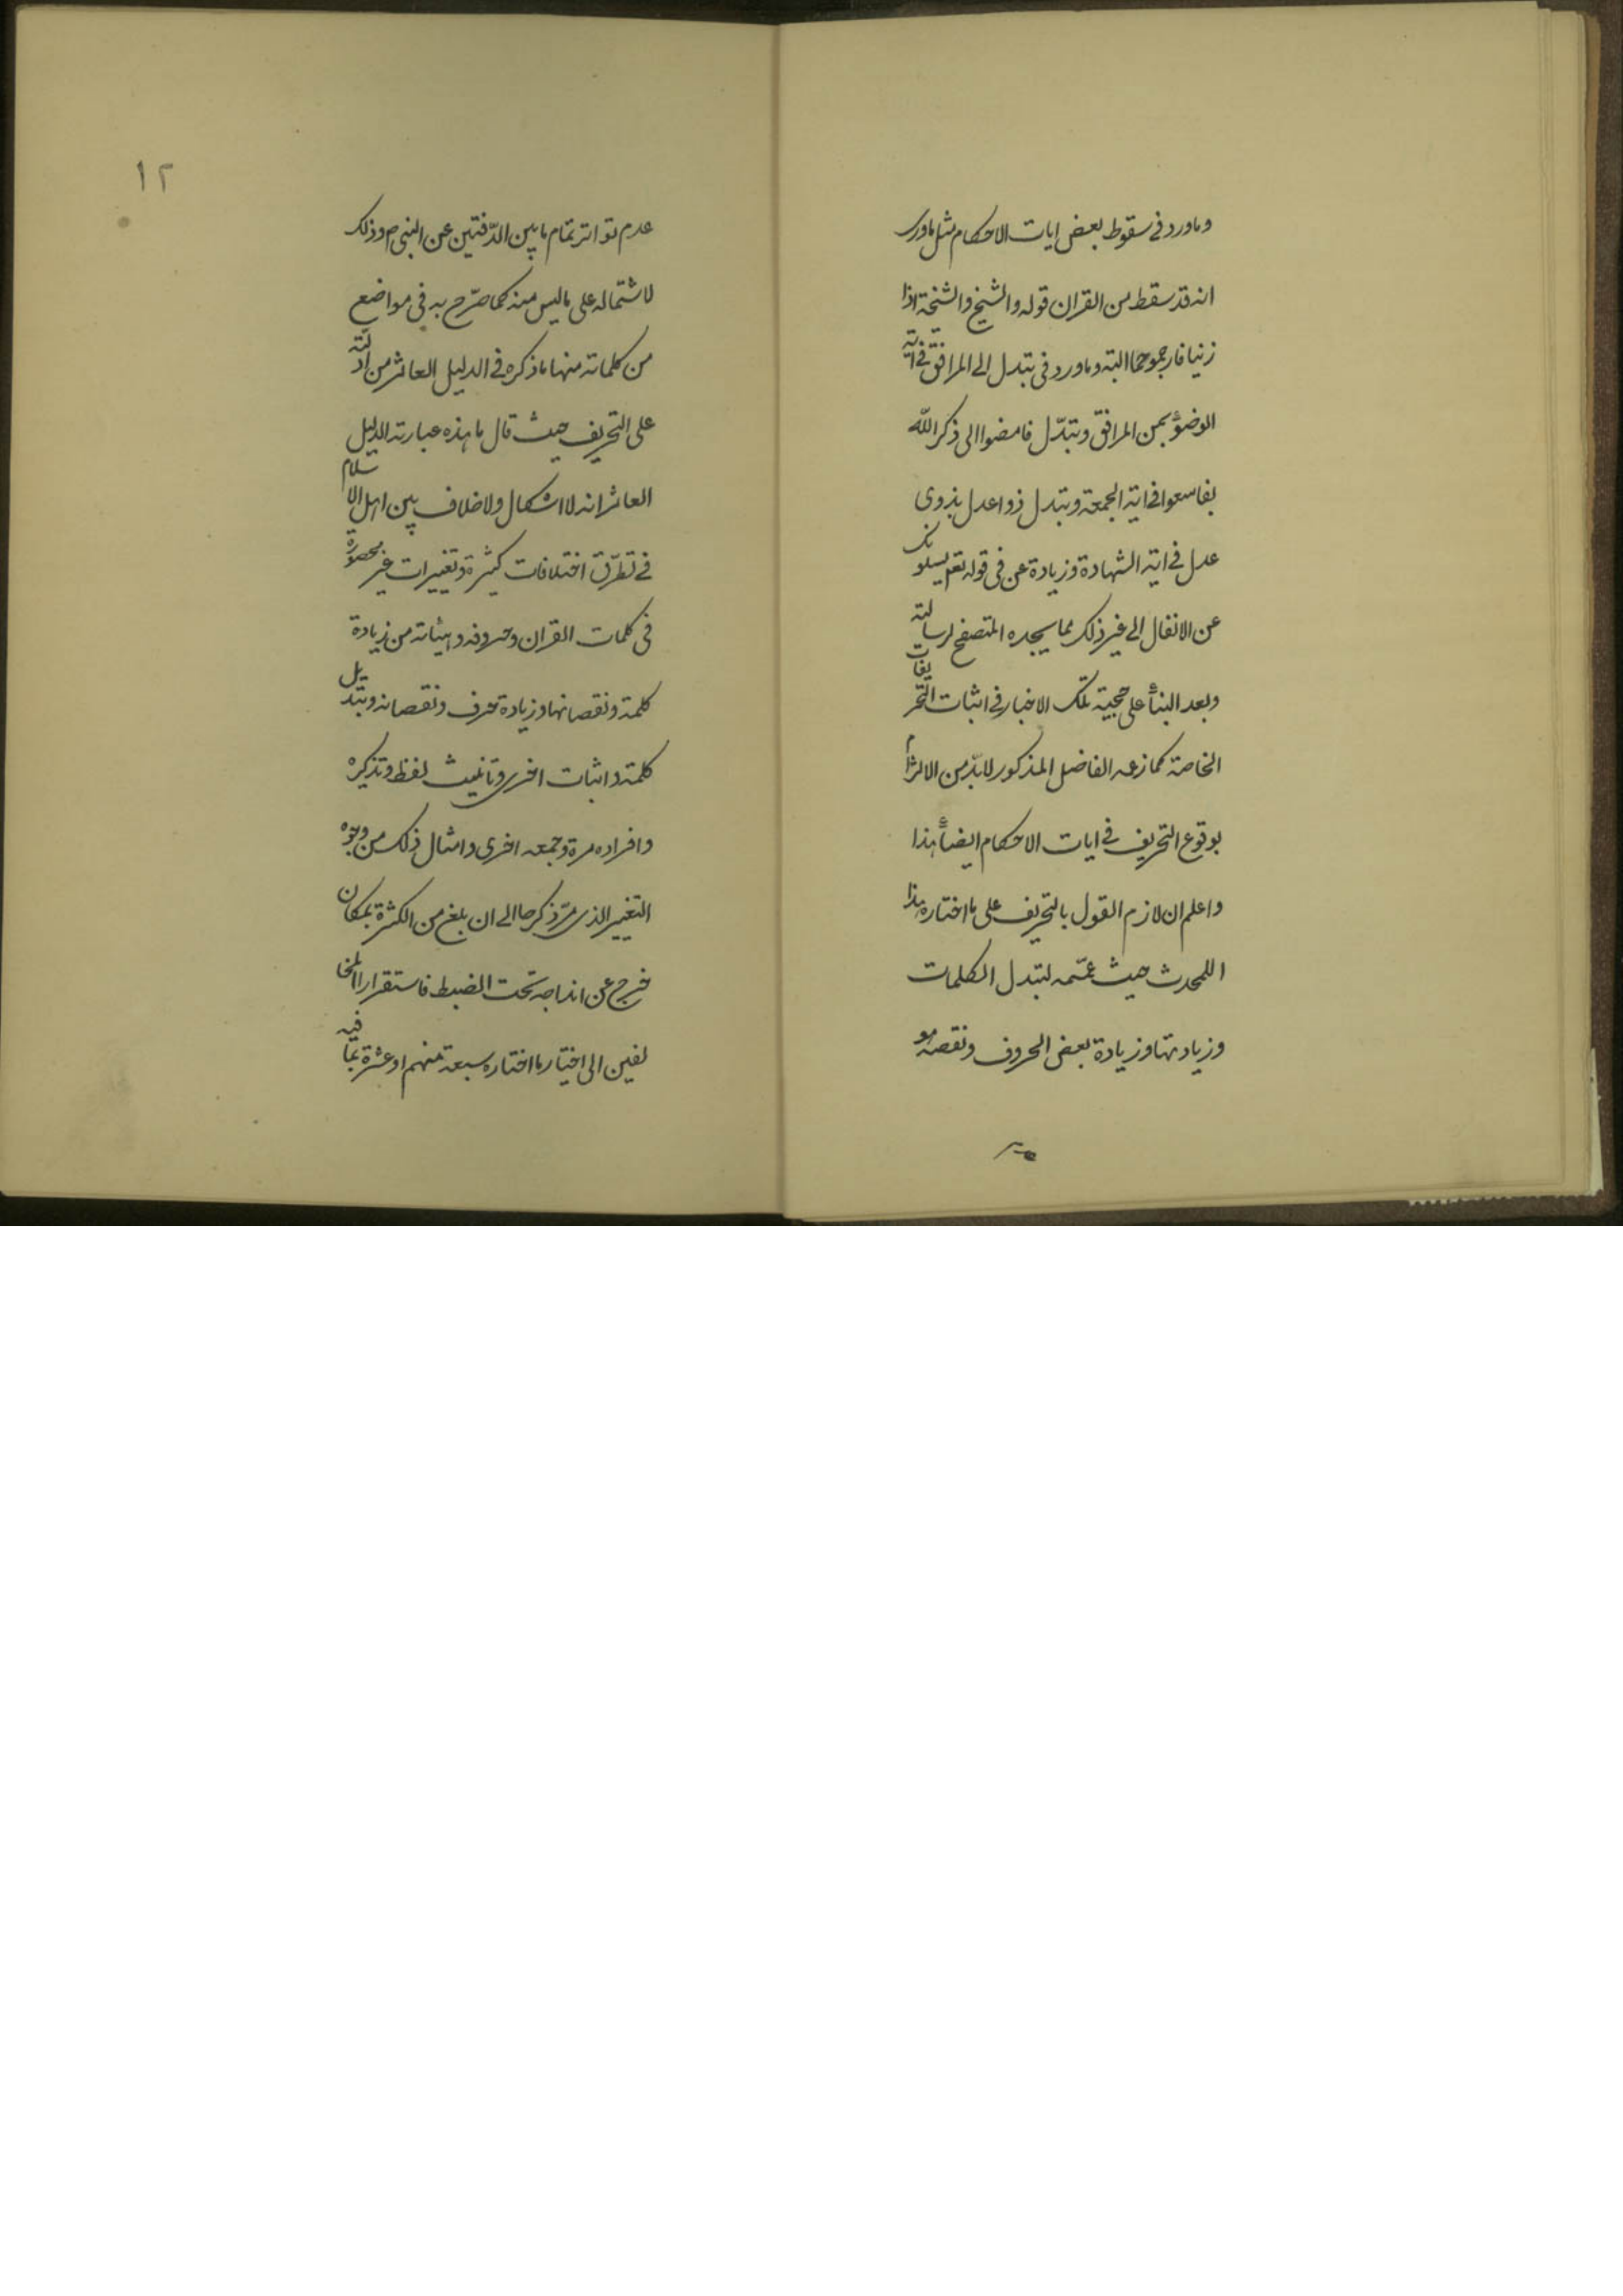 وماورد فی سقوط بعض ایات الاحکام مثل ماورد
انه قد سقط من القران قوله والشیخ والشیخة اذا
زنیا فارجموهما البته وماورد فی تبدل الی المرافق فی ایة
الوضوء بمن المرافق وتبدّل فامضوا الی ذکر اللّه
بفاسعوا فی ایة الجمعة وتبدل ذوا عدل بذوی
عدل فی ایة الشهادة وزیادة عن فی قوله تعم یسلونک
عن الانفال الی غیر ذلک مما یجده المتصفح لرسالته
وبعد البناء علی حجیة تلک الاخبار فی اثبات التحریفات
الخاصة کما زعمه الفاضل المذکور لابدّ من الالتزام
بوقوع التحریف فی ایات الاحکام ایضاً هذا
واعلم ان لازم القول بالتحریف علی ما اختاره هذا
المحدث حیث عمّمه لتبدل الکلمات
وزیادتها وزیادة بعض الحروف ونقصه هو
عدم
١٢
عدم تواتر تمام ما بین الدّفتین عن النبی ص وذلک
لاشتماله علی ما لیس منه کما صرّح به فی مواضع
من کلماته منها ما ذکره فی الدلیل العاشر من ادلته
علی التحریف حیث قال ما هذه عبارته الدلیل
العاشر انه لا اشکال ولا خلاف بین اهل الاسلام
فی تطرّق اختلافات کثیرة وتغییرات غیر محصورة
فی کلمات القران وحروفه وهیئاته من زیادة
کلمة ونقصانها وزیادة حرف ونقصانه وتبدیل
کلمة واثبات اخری وتانیث لفظ وتذکیره
وافراده مرة وجمعه اخری وامثال ذلک من وجوه
التغییر الذی مرّ ذکرها الی ان بلغ من الکثرة بمکان
خرج عن اندراجه تحت الضبط فاستقر اراء المخا
لفین الی اختیار ما اختاره سبعة منهم او عشرة بما فیه